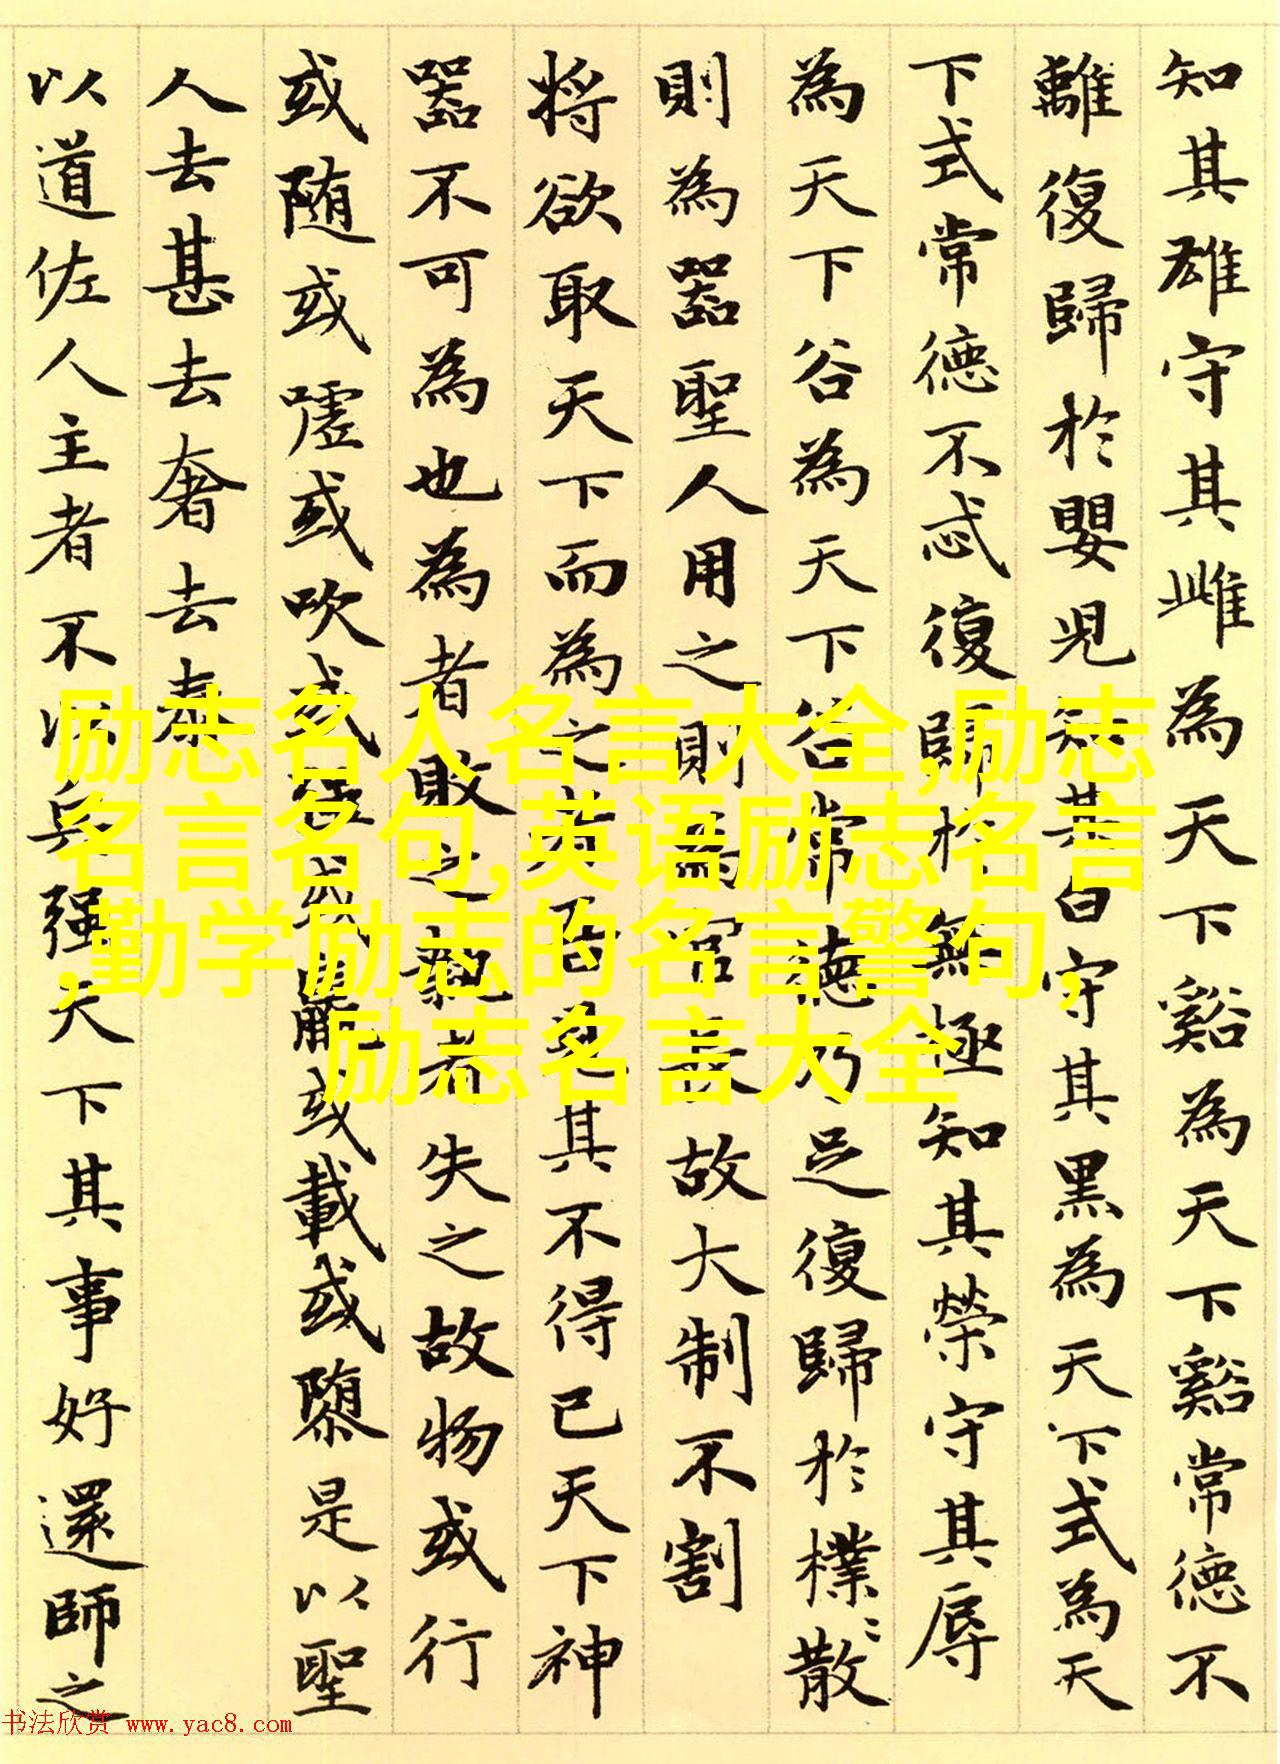 知其雄守其雌為天下谿為天下谿常德不
離復歸於嬰兒知其白守其黑為天下式為天
下式常德不忒復歸於無極知其榮守其辱
為天下谷為天下谷常德乃足復歸於樸〻散
則為器聖人用之則為官長故大制不割
将欲取天下而為之者吾見其不得已天下神
器不可為也為者敗之執者失之故物或行
或随或嘘或吹或強或羸或載或隳是以聖
人去甚去奢去泰
以道佐人主者不以兵强天下其事好還師之
励志名人名言大全,励志
名言名句,英语励志名言
,勤学励志的名言警句,
励志名言大全
书法欣赏 www.yac8.com